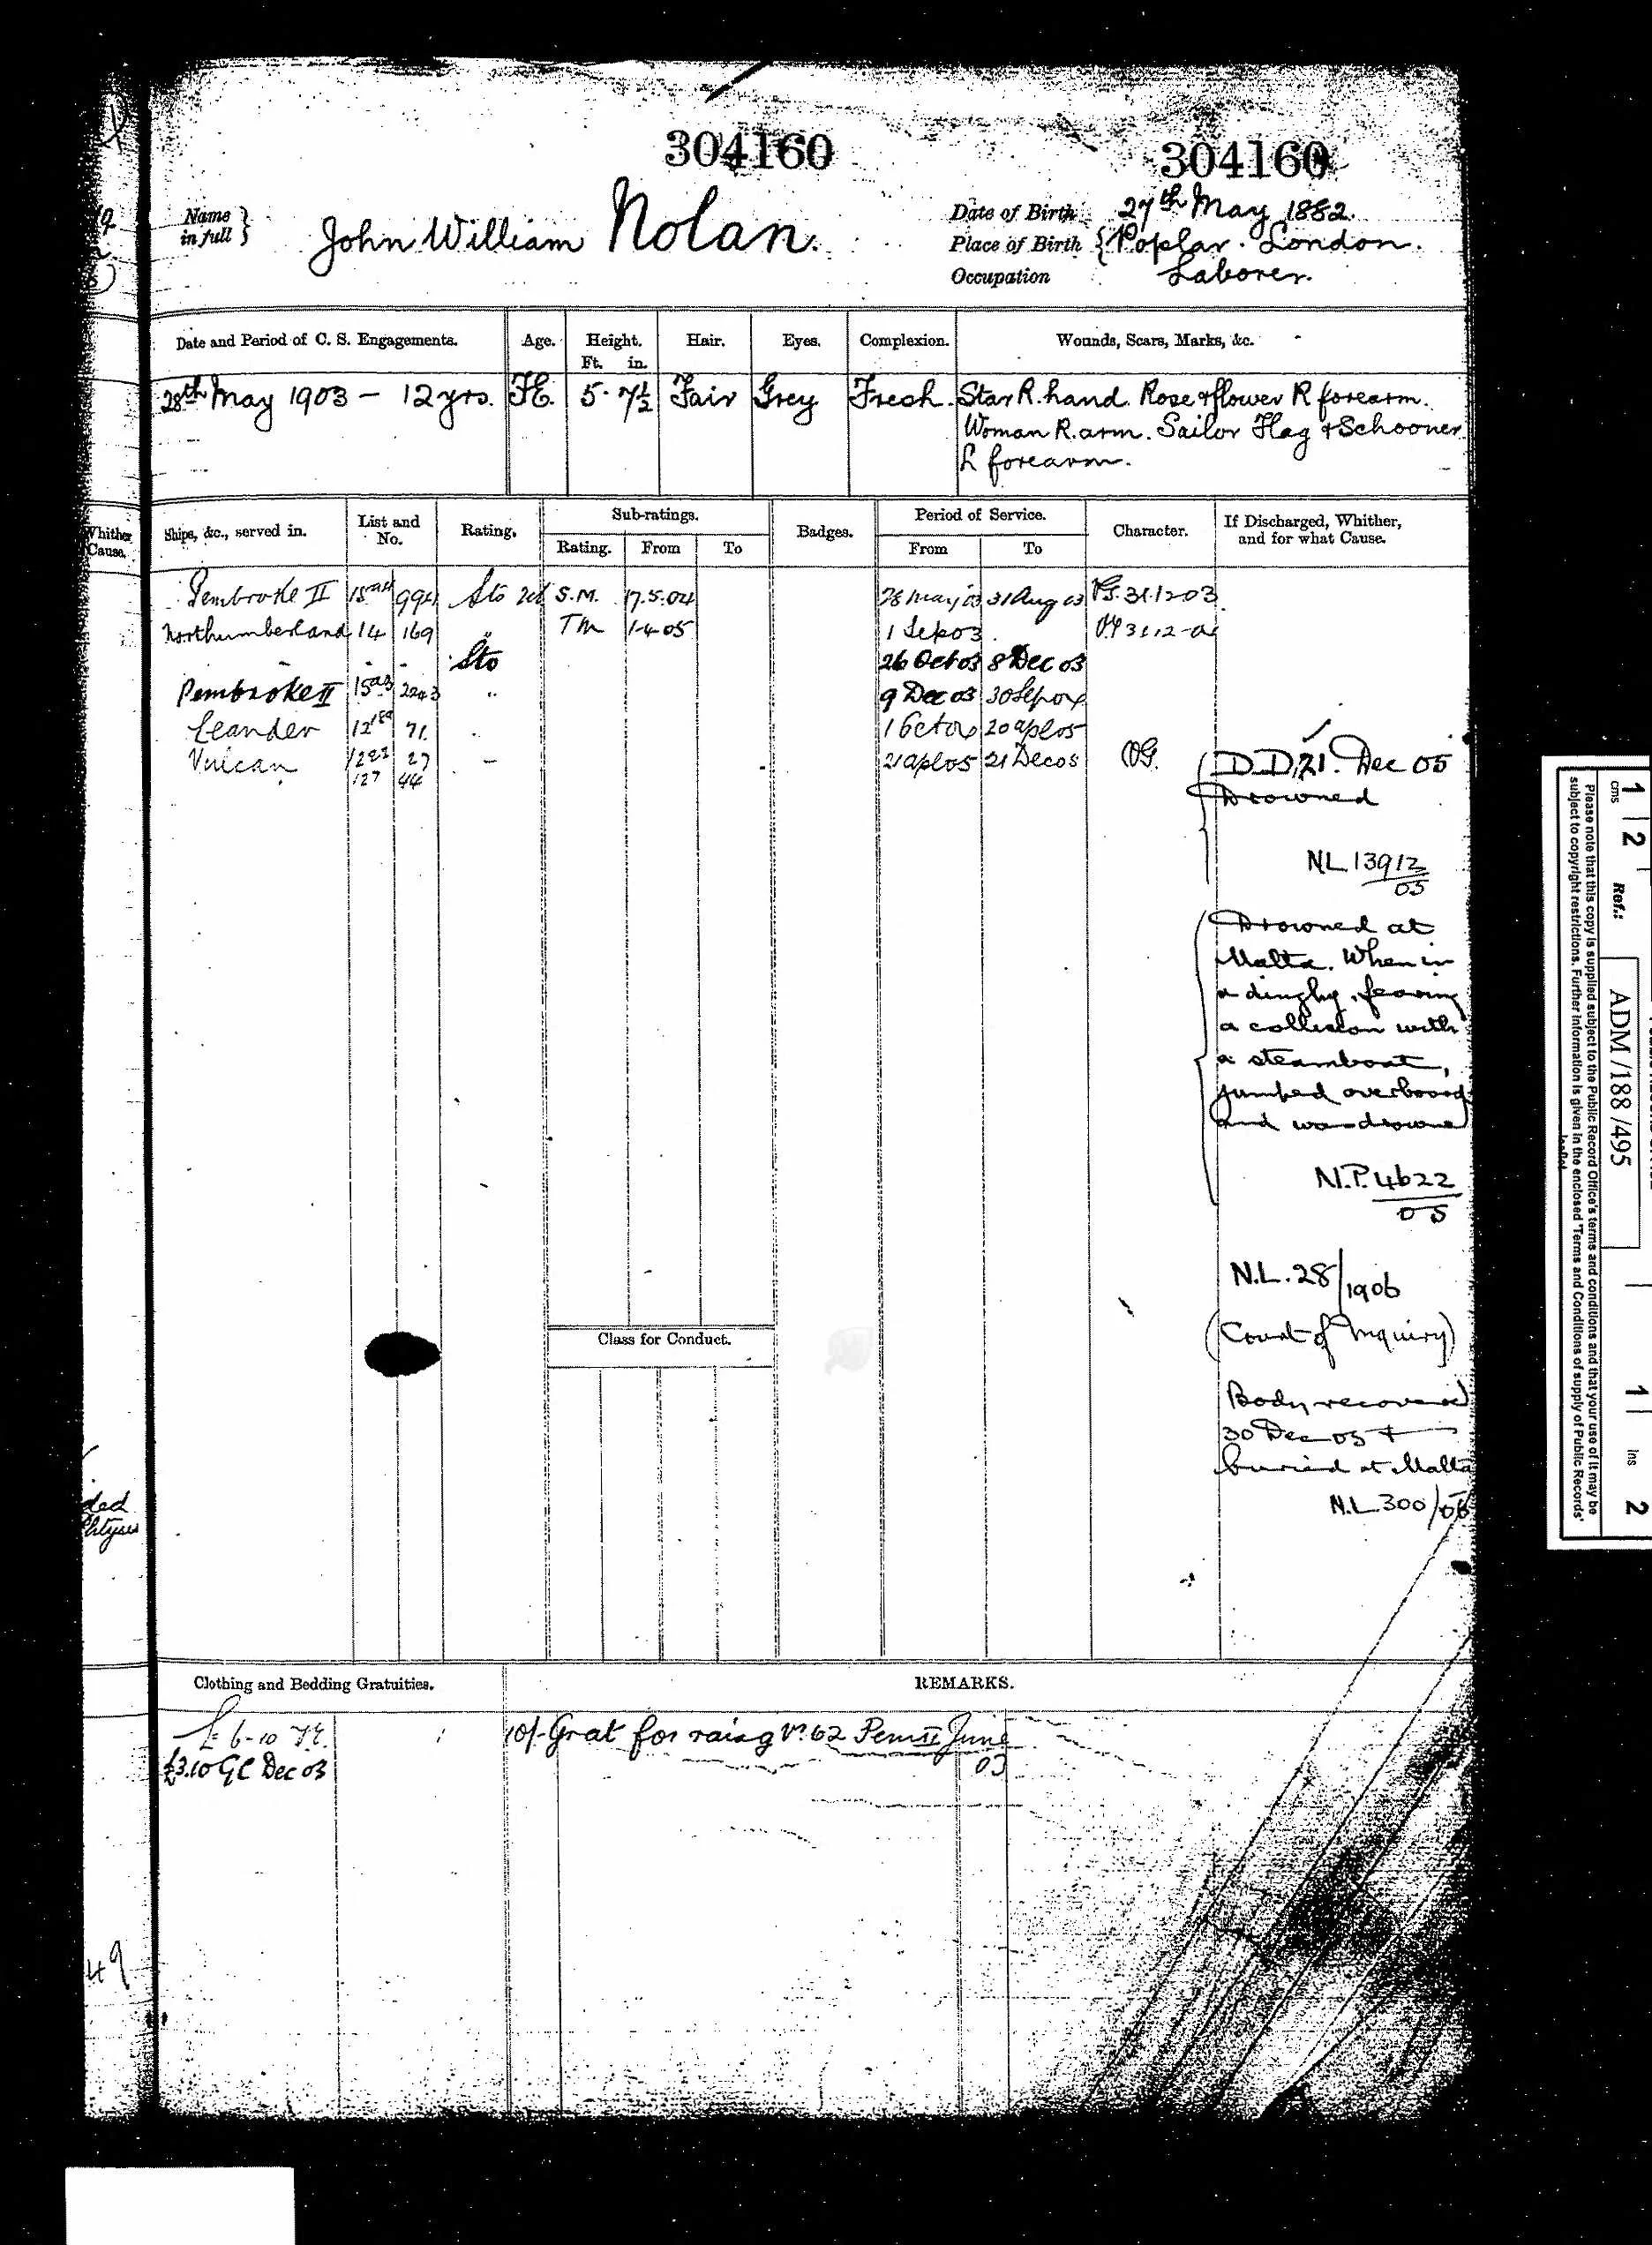 304160
304160
Name in full } John William Nolan.
Date of Birth 27th May 1882.
Place of Birth { Poplar. London.
Occupation Laborer.
Date and Period of C. S. Engagements. Age. Height. Ft. in. Hair. Eyes. Complexion. Wounds, Scars, Marks, &c.
28th May 1903 – 12 yrs. 5. 7½ Fair Grey Fresh. Star R. hand. Rose & flower R forearm.
Woman R. arm. Sailor Flag & Schooner
L forearm.
Whither
Cause.
Ships, &c., served in. List and No. Rating. Sub-ratings. Badges. Period of Service. Character. If Discharged, Whither, and for what Cause.
Rating. From To From To
Pembroke II 15 994 Sto 2cl S.M. 17.5.04 28 May 03 31 Aug 03 VG. 31.12.03
Northumberland 14 169 " Tm 1-4-05 1 Sep 03
- - - Sto 26 Oct 03 8 Dec 03
Pembroke II 15 2243 " 9 Dec 03 30 Sep 04
Leander 12 71 1 Oct 04 20 Apl 05
Vulcan 12 27 - 21 Apl 05 21 Dec 05 VG. D.D. 21. Dec 05
127 44
Drowned
NL 13912/05
Drowned at
Malta. When in
a dinghy, fearing
a collision with
a steamboat,
jumped overboard
and was drowned
N.P. 4622/05
N.L. 28/1906
(Court of Inquiry)
Body recovered
30 Dec 05 &
buried at Malta
N.L. 300/06
Class for Conduct.
ded
49
Clothing and Bedding Gratuities. REMARKS.
£ 6-10
£3.10 GC Dec 03
10/- Grat for raisg Vn 62 Pem II June
03
1 2
cms
Ref.:
ADM /188 /495
1 ins 2
Please note that this copy is supplied subject to the Public Record Office's terms and conditions and that your use of it may be
subject to copyright restrictions. Further information is given in the enclosed 'Terms and Conditions of supply of Public Records'
leaflet